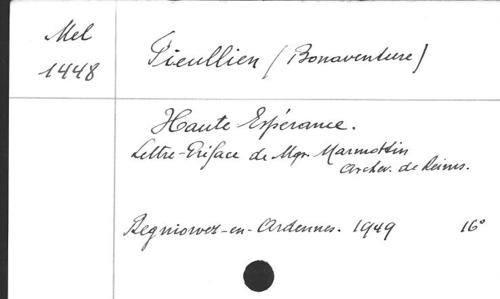 Mel
1448
Fieullien (Bonaventure)
Haute Espérance.
Lettre-Préface de Mgr. Marmottin
Archev. de Reims.
Regniowez-en-Ardennes. 1949 16°